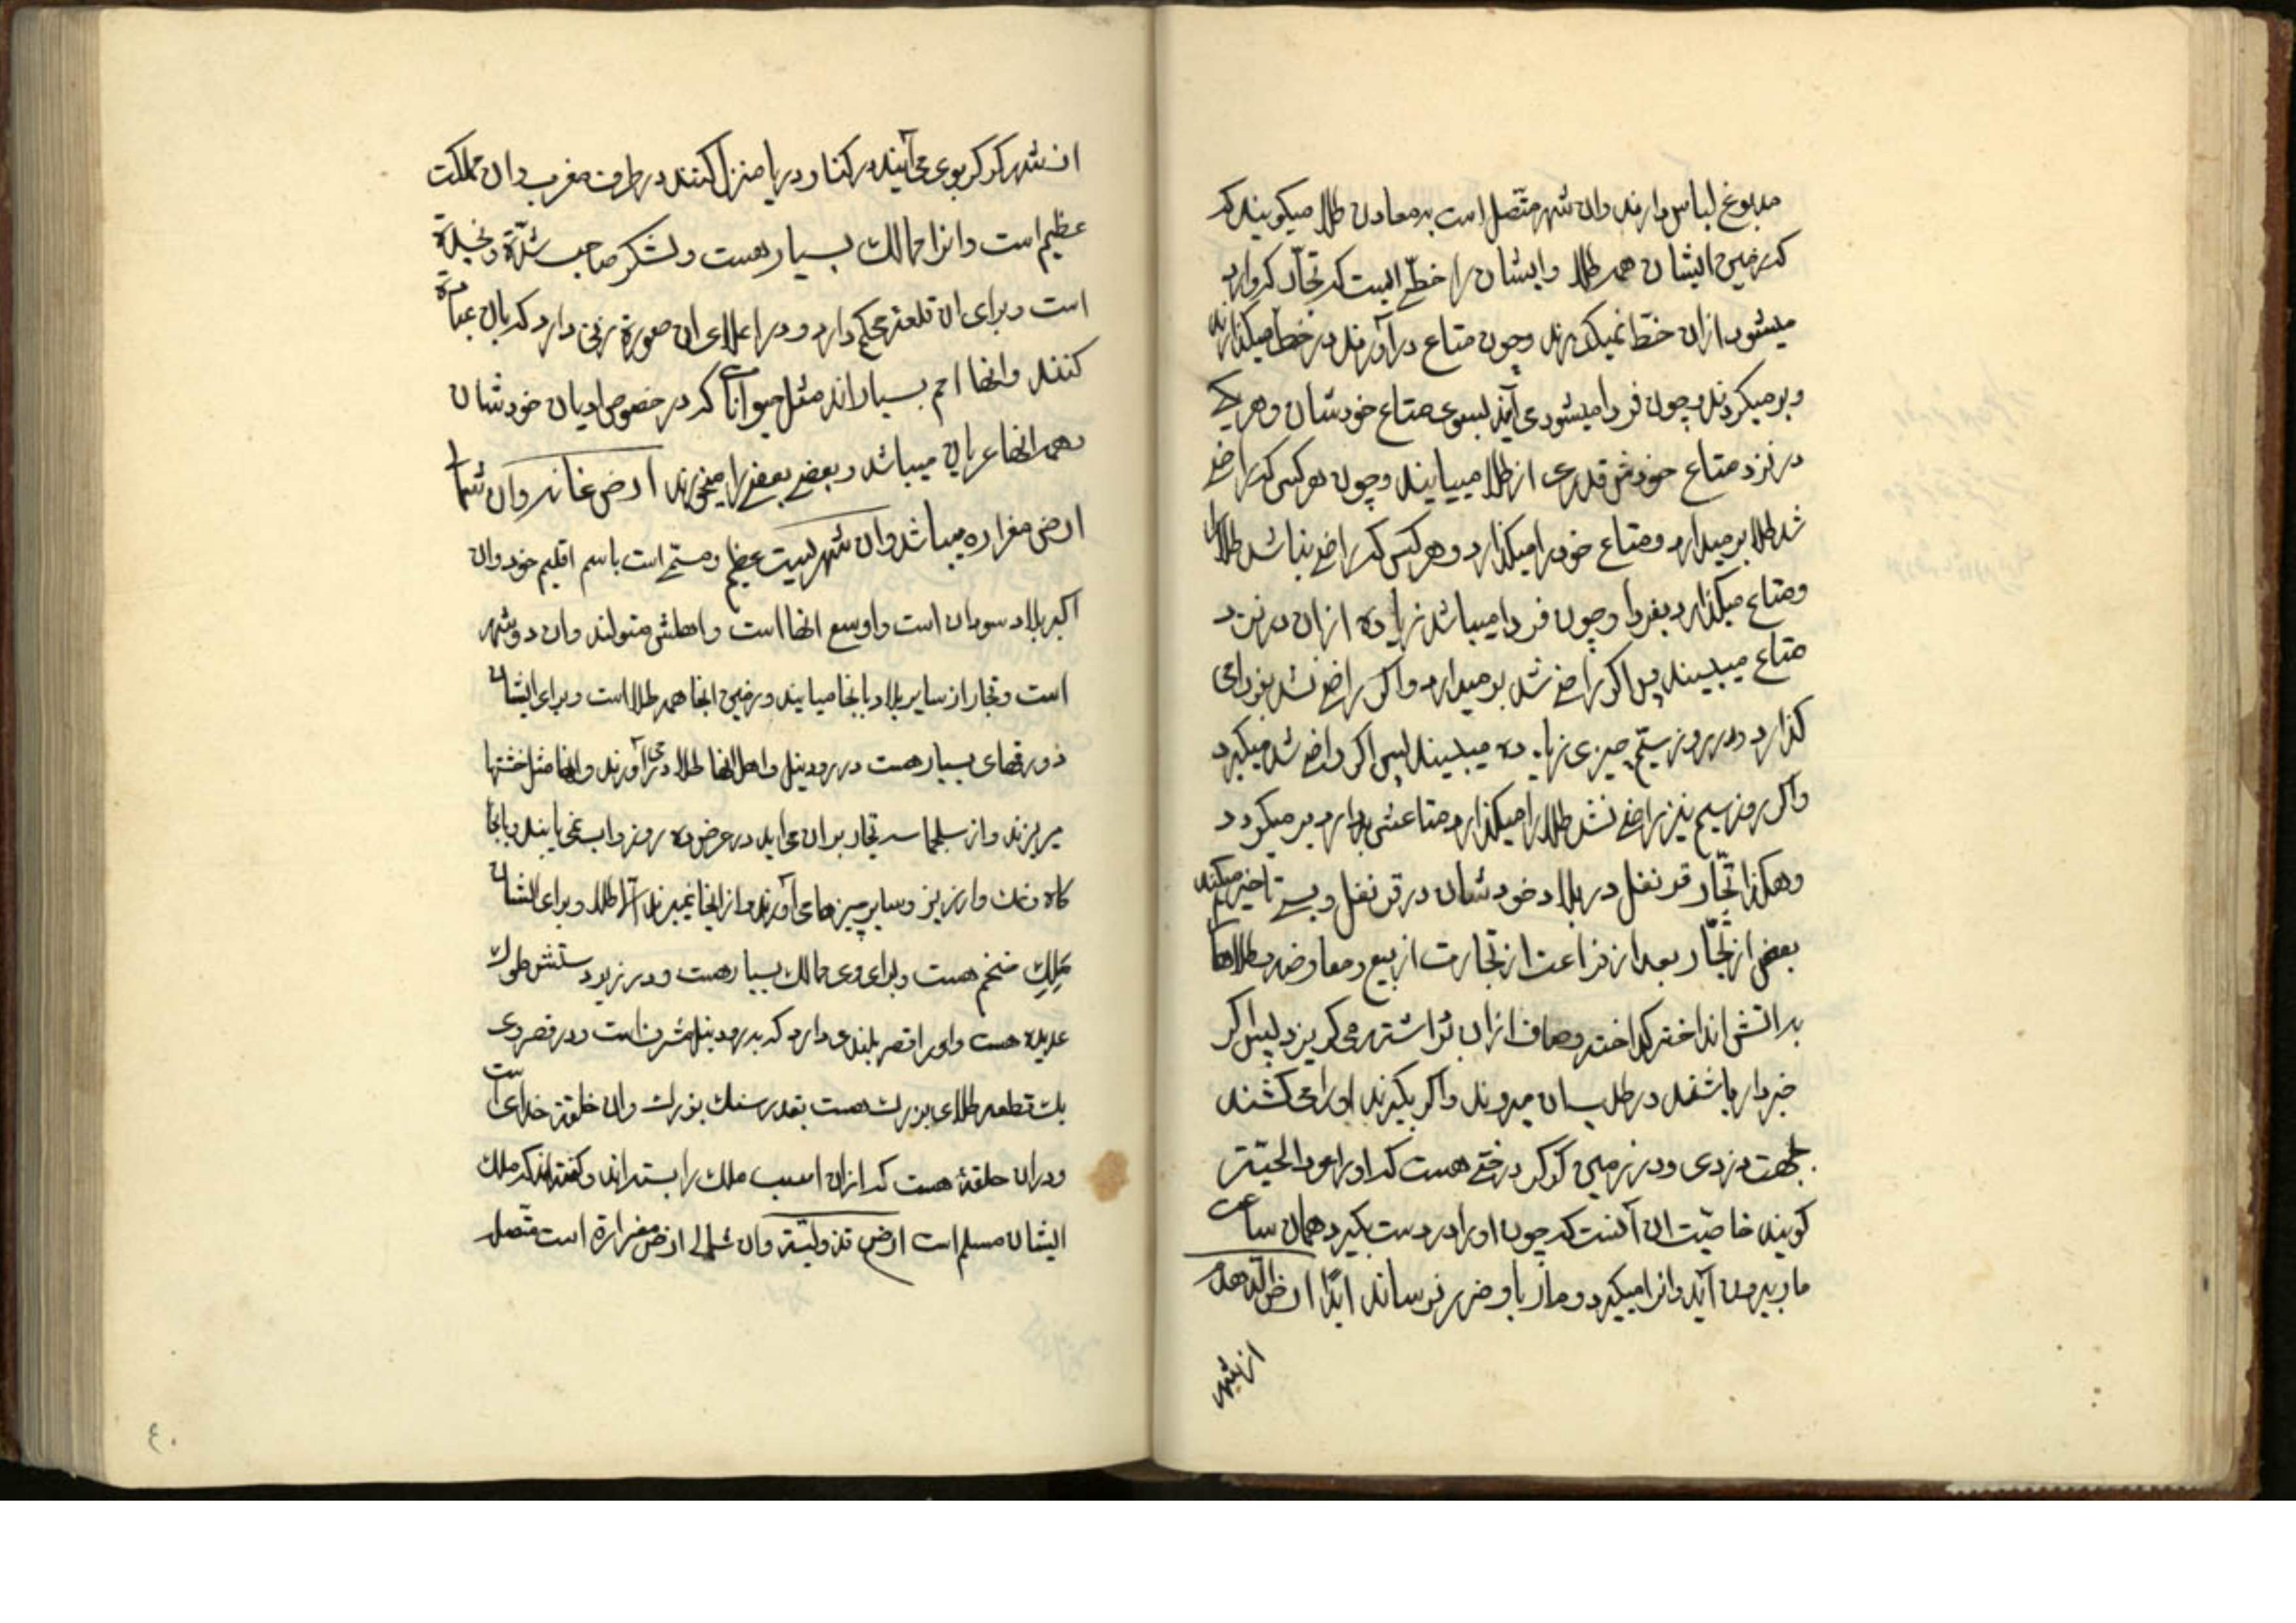 مدبوغ لباس دارند وان شهر متّصل است به معادن طلا میکویند که
که زمین ایشان همه طلا و ایشان را خطّے ایست که تجّار که وارد
میشوند ازان خطّ نمیکذرند وچون متاع درآورند در خط میکذارند
وبرمیکردند وچون فردا میشود می آیند بسوی متاع خودشان وهریکے
در نزد متاع خودش قدری از طلا میبایند وچون هرکس که راضے
شد طلا برمیدارد ومتاع خود را میکذارد وهرکس که راضے نباشد طلا را
ومتاع میکذارد بفردا وچون فردا میباشد زیاده ازان در نزد
متاع میبیند پس اکر راضے شد برمیدارد واکر راضے نشد بفردا می
کذارد ودر روز سیّم چیزی زیاده میبیند پس اکر راضے شد میکیرد
واکر روز سیم نیز راضے نشد طلا را میکذارد ومتاعش بردارد برمیکردد
وهکذا تجّار قرنفل در بلاد خودشان در قرنفل وبسے تاخیر میکنند
بعضی از تجّار بعد از فراعت از تجارت از بیع ومعاوضه بطلاها
به اتش انداخته کداخته وصاف ازان تراشته می کریزد پس اکر
خبردار باشند در طلبشان میروند واکر بکیرند اورا می کشند
بجهت دزدی ودر زمین کوکو درختے هست که اورا عود الحیّة
کویند خاصیّت ان آنست که چون اورا در دست بکیرد همان ساعت
مار بیرون آید وانرا میکیرد ومار باو ضرر نرساند ابدًا ارض الدهدم
ان شهر
ان شهر کوکو بوی می آیند در کنار دریا منزل کنند در طرف مغرب وان مملکت
عظیم است وانرا ممالک بسیار هست ولشکر صاحب شدّة ونجدة
است وبرای ان قلعه محکم دارد ودر اعلای ان صورة زنی دارد که بان عبادة
کنند وانها امم بسیار اند مثل حیوانات که در خصوص ادیان خودشان
وهمه انها عریان میباشد وبعضے بعضے را میخورند ارض غانه وان شمال
ارض مغراره میباشد وان شهریست عظیم ومسمّے است باسم اقلیم خود وان
اکبر بلاد سودان است واوسع انها است واهلش متولند وان دو شهر
است وتجار از سایر بلاد بانجا میایند وزمین انجا همه طلا است وبرای ایشان
زورقهای بسیار هست در رود نیل واهل انها طلا درمی آورند وانها مثل خشتها
میریزند واز سلجماسه تجار بران می اید در عرض ده روز واب نمی یابند وبانجا
کاه ونمک وارزیز وسایر چیزها می آورند واز انجا نمیبرند الّا طلا وبرای ایشان
ملک ضخم هست وبرای وی ممالک بسیار هست ودر زیر دستش ملوک
عدیده هست واورا قصر بلندی دارد که برود نیل مشرف است ودر قصر وی
یک قطعه طلای بزرک هست بقدر سنک بزرک وان خلقة خدای است
ودران حلقهٔ هست که ازان اسب ملک را بسته اند وکفته اند که ملک
ایشان مسلم است ارض تمزولیّة وان شمالے ارض مغزارة است متّصل
٤٠